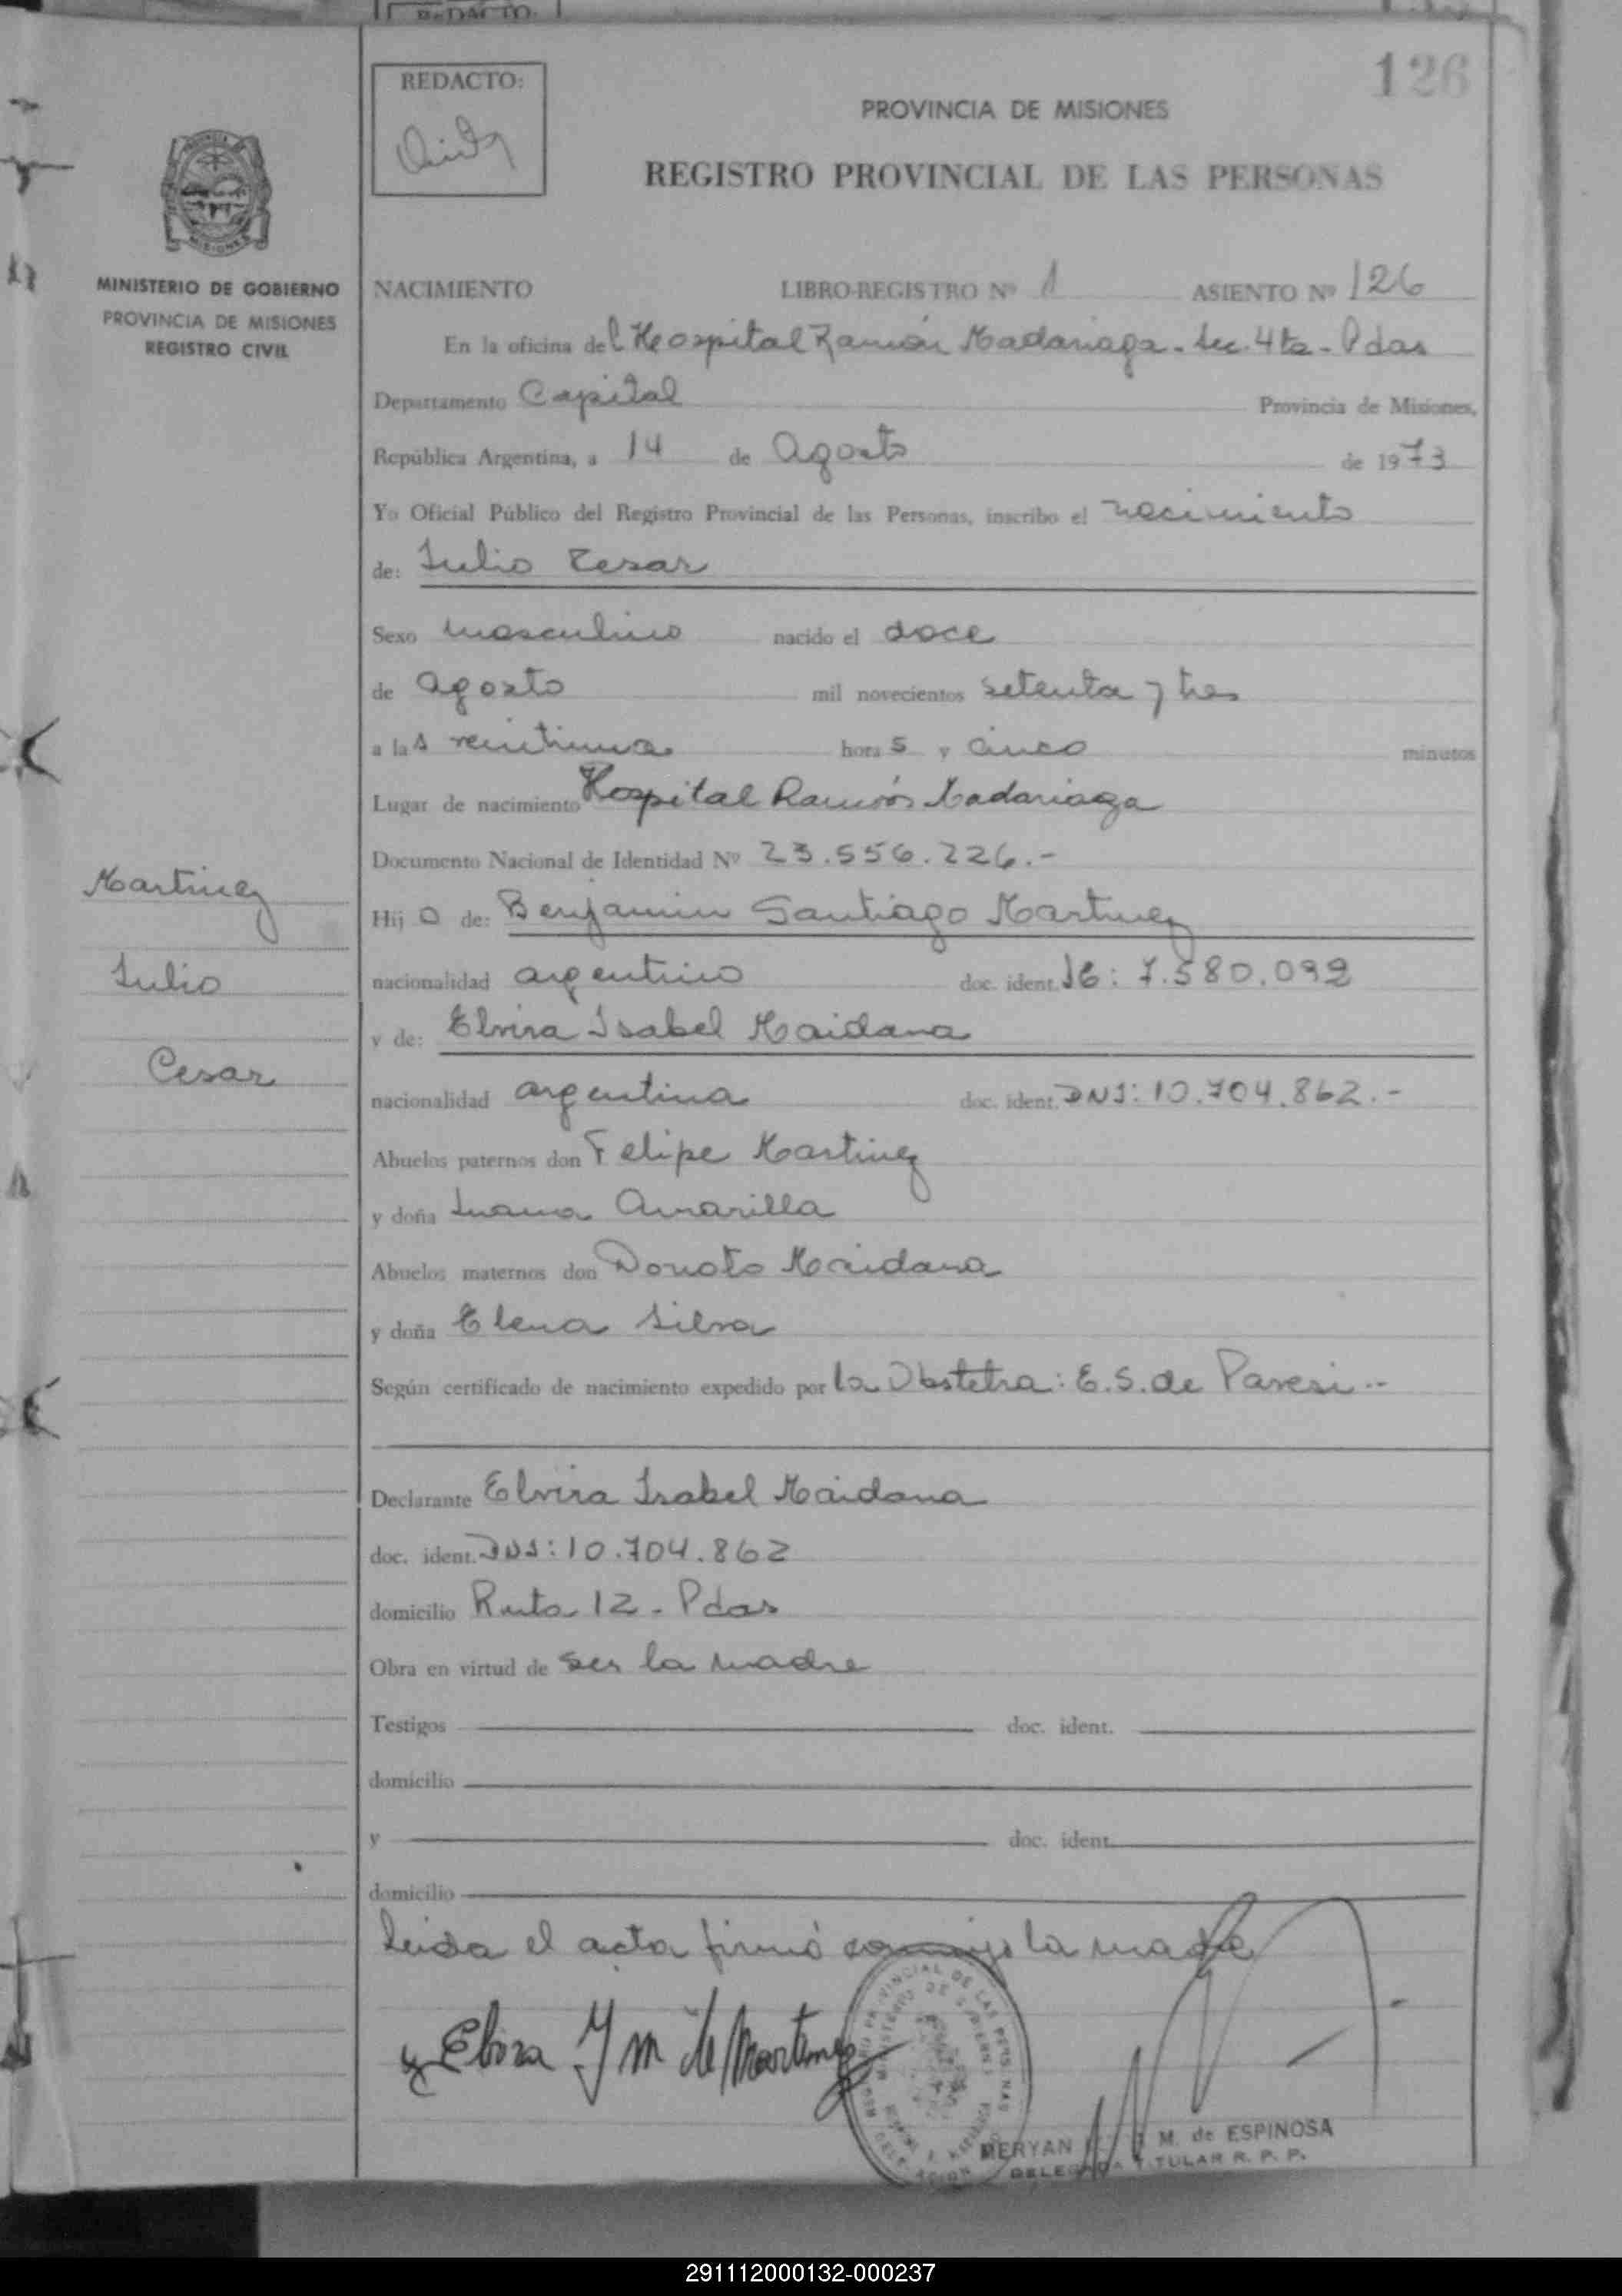 REDACTO:
126
PROVINCIA DE MISIONES
REGISTRO PROVINCIAL DE LAS PERSONAS
MINISTERIO DE GOBIERNO
PROVINCIA DE MISIONES
REGISTRO CIVIL
NACIMIENTO LIBRO-REGISTRO Nº 1 ASIENTO Nº 126
En la oficina del Hospital Ramón Madariaga - Sec. 4ta - Pdas
Departamento Capital Provincia de Misiones,
República Argentina, a 14 de Agosto de 1973
Yo Oficial Público del Registro Provincial de las Personas, inscribo el nacimiento
de: Julio Cesar
Sexo masculino nacido el doce
de agosto mil novecientos setenta y tres
a las veintiuna horas y cinco minutos
Lugar de nacimiento Hospital Ramón Madariaga
Documento Nacional de Identidad Nº 23.556.226.-
Martinez
Hijo de: Benjamin Santiago Martinez
Julio
nacionalidad argentino doc. ident. 7.580.092
y de: Elvira Isabel Maidana
Cesar
nacionalidad argentina doc. ident. DNI: 10.704.862.-
Abuelos paternos don Felipe Martinez
y doña Juana Amarilla
Abuelos maternos don Donato Maidana
y doña Elena Silva
Según certificado de nacimiento expedido por la Obstetra: E.S. de Paresi --
Declarante Elvira Isabel Maidana
doc. ident. DNI: 10.704.862
domicilio Ruta 12 - Pdas
Obra en virtud de ser la madre
Testigos doc. ident.
domicilio
y doc. ident.
domicilio
Leida el acta firmó conmigo la madre
Elvira Y M de Martinez
MERYAN M. de ESPINOSA
DELEGADA TITULAR R. P. P.
291112000132-000237